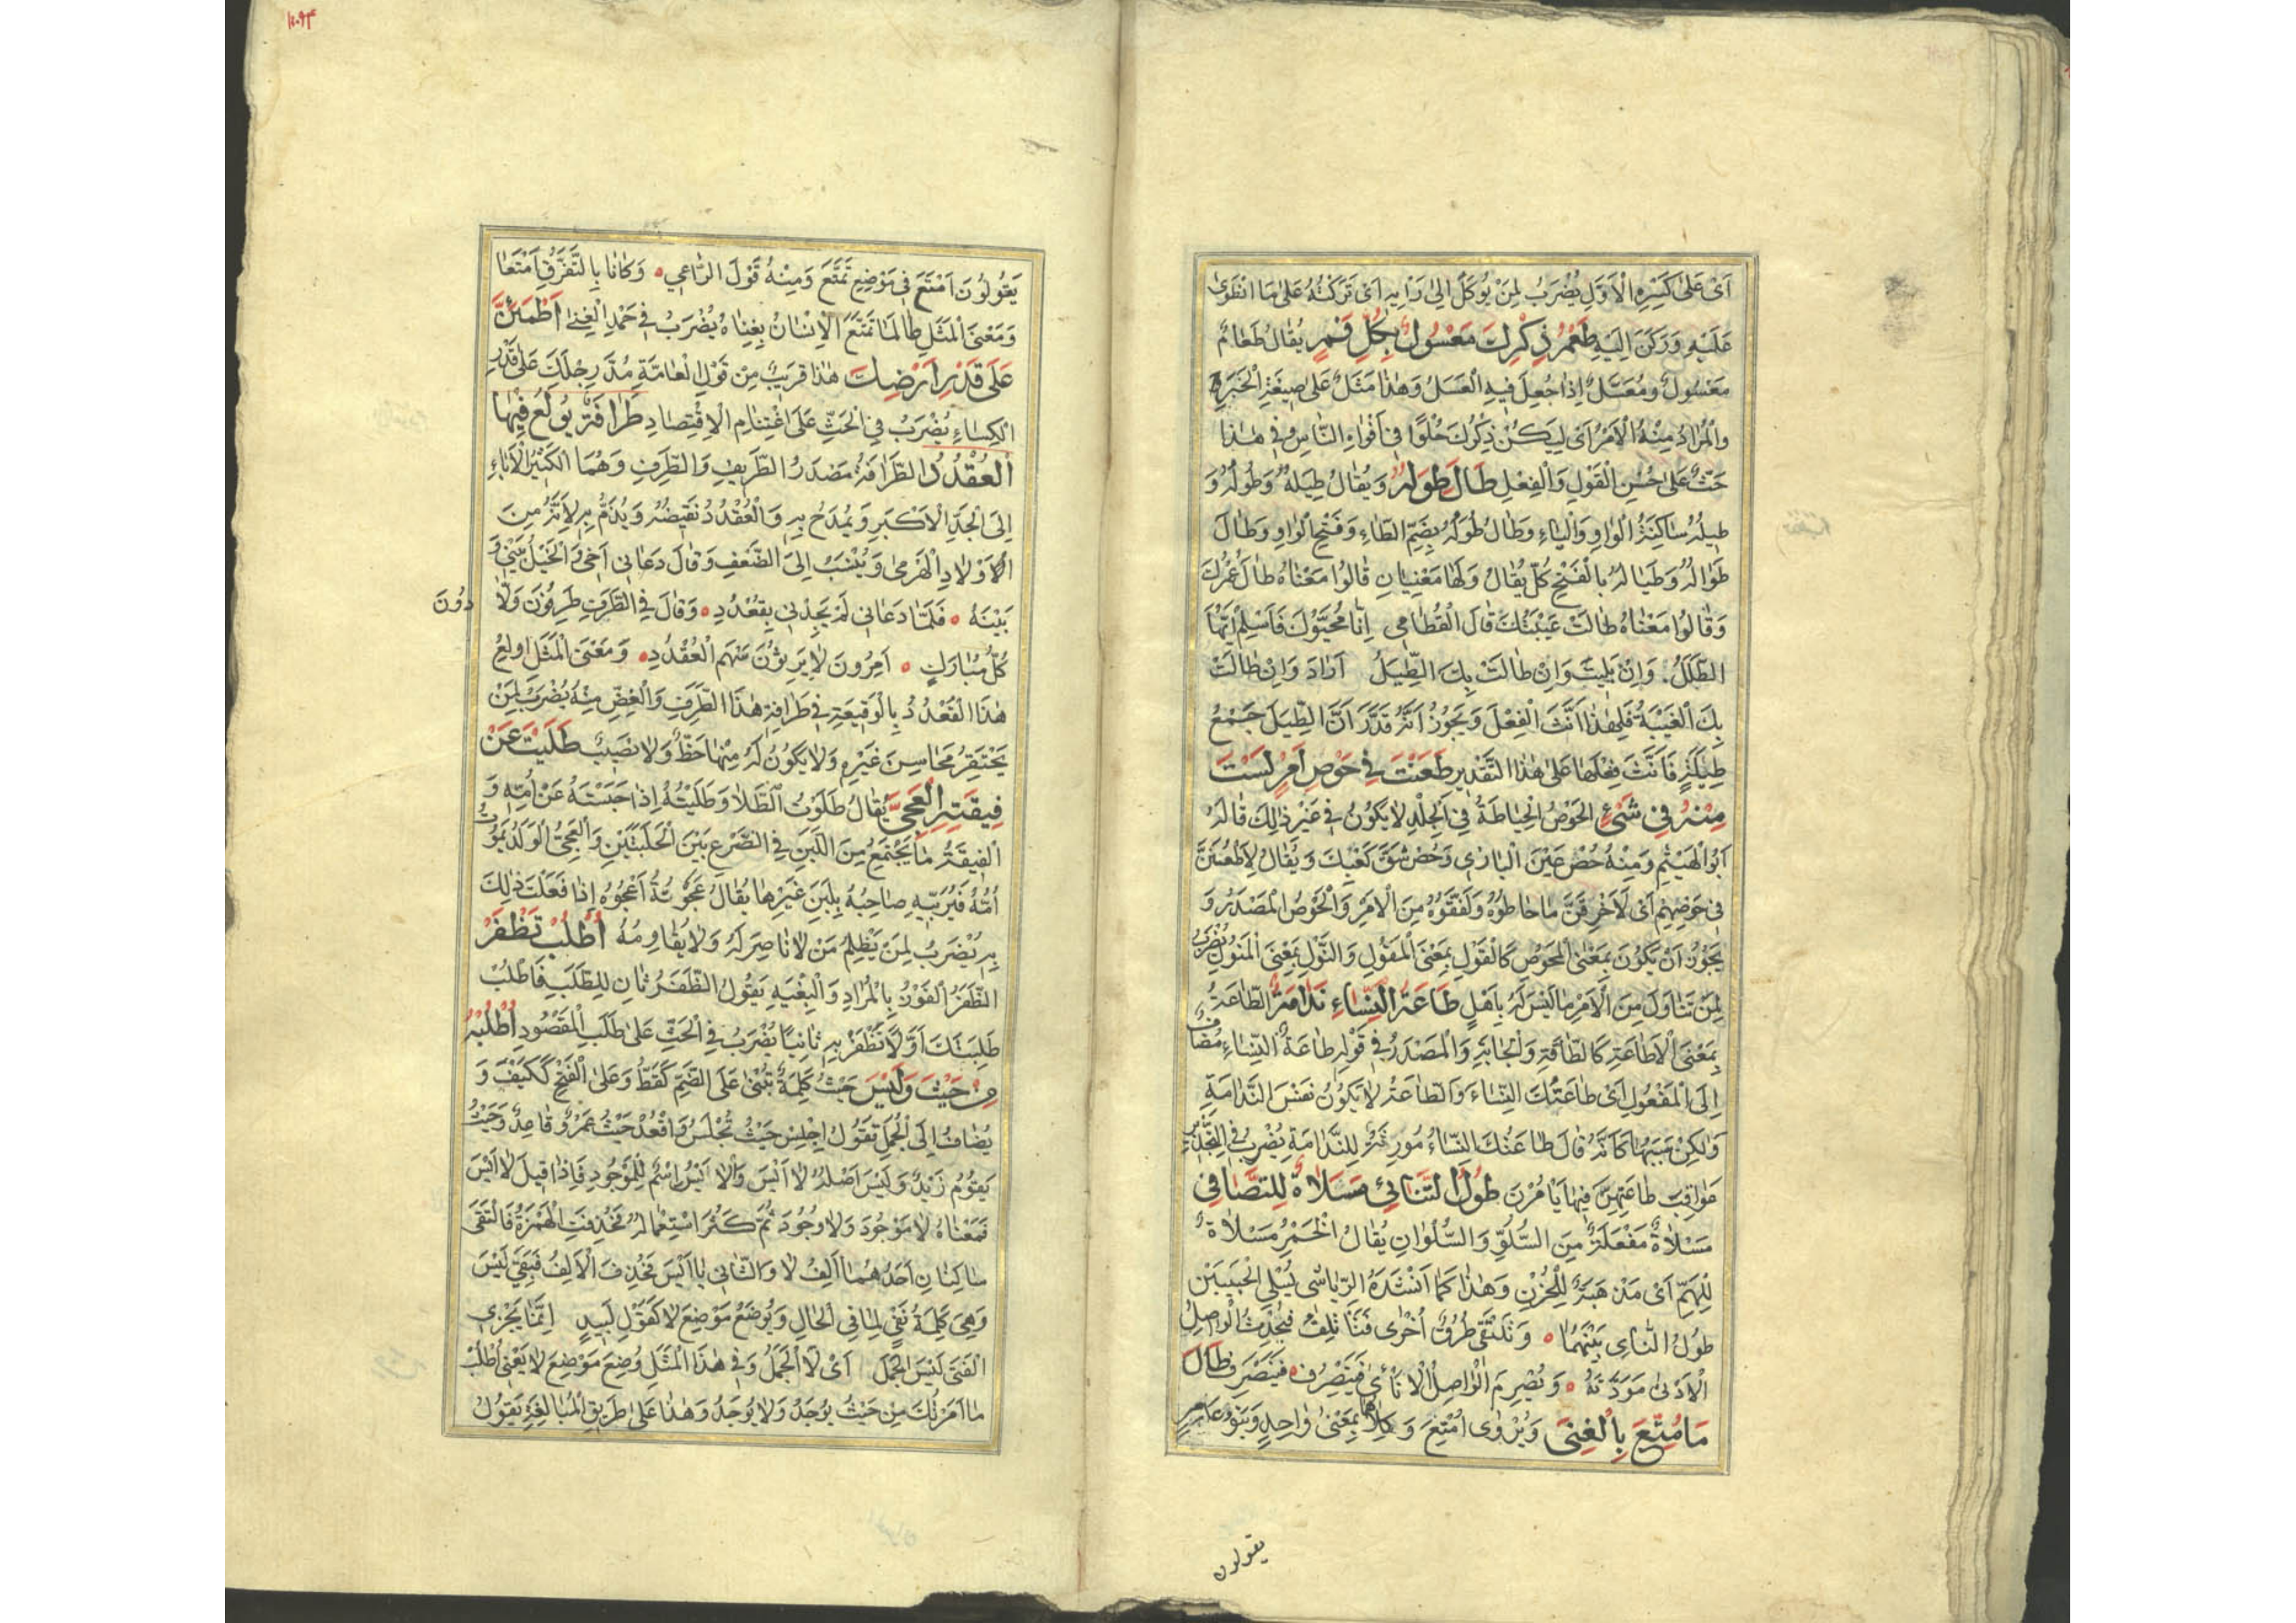 اَىْ عَلىٰ كَسْرِهِ الْاَوَّلِ يُضْرَبُ لِمَنْ يُوكَلُ اِلىٰ رَأْيِهِ اَىْ تَرَكْتُهُ عَلىٰ مَا انْطَوىٰ
عَلَيْهِ وَرَكَنَ اِلَيْهِ طَعْمُ ذِكْرِكَ مَعْسُولٌ بِكُلِّ فَمٍ يُقٰالُ طَعٰامٌ
مَعْسُولٌ وَمُعَسَّلٌ اِذٰا جُعِلَ فِيهِ الْعَسَلُ وَهٰذٰا مَثَلٌ عَلىٰ صِيغَةِ الْخَبَرِ
وَالْمُرٰادُ مِنْهُ الْاَمْرُ اَىْ لِيَكُنْ ذِكْرُكَ حُلْوًا فِى اَفْوٰاهِ النّٰاسِ وَفِى هٰذٰا
حَثٌّ عَلىٰ حُسْنِ الْقَوْلِ وَالْفِعْلِ طَالَ طِوَلُهُ وَيُقٰالُ طِيَلُهُ وَطُولُهُ وَ
طِيلُهُ سٰاكِنَةُ الْوٰاوِ وَالْيٰاءِ وَطٰالَ طُوَلُهُ بِضَمِّ الطّٰاءِ وَفَتْحِ الْوٰاوِ وَطٰالَ
طَوٰالُهُ وَطَيٰالُهُ بِالْفَتْحِ كُلٌّ يُقٰالُ وَلَهٰا مَعْنَيٰانِ قٰالُوا مَعْنٰاهُ طٰالَ عُمُرُكَ
وَقٰالُوا مَعْنٰاهُ طٰالَتْ غَيْبَتُكَ قٰالَ الْقُطٰامِى اِنّٰا مُحَيُّوكَ فَاسْلَمْ اَيُّهَا
الطَّلَلُ. وَاِنْ بَلِيتَ وَاِنْ طٰالَتْ بِكَ الطِّيَلُ اَرٰادَ وَاِنْ طٰالَتْ
بِكَ الْغَيْبَةُ فَلِهٰذٰا اَنَّثَ الْفِعْلَ وَيَجُوزُ اَنَّهُ قَدَّرَ اَنَّ الطِّيَلَ جَمْعُ
طِيلَةٍ فَاَنَّثَ فِعْلَهٰا عَلىٰ هٰذَا التَّقْدِيرِ طَعَنْتَ فِى حَوْصِ اَمْرٍ لَسْتَ
مِنْهُ فِى شَيْءٍ الْحَوْصُ الْخِيٰاطَةُ فِى الْجِلْدِ لٰا يَكُونُ فِى غَيْرِ ذٰلِكَ قٰالَهُ
اَبُو الْهَيْثَمِ وَمِنْهُ حُصْ عَيْنَ الْبٰازِى وَحُصْ شَقَّ كَعْبِكَ وَيُقٰالُ لَاَطْعُنَنَّ
فِى حَوْصِهِمْ اَىْ لَاَخْرِقَنَّ مٰا حٰاطُوهُ وَلَفَّقُوهُ مِنَ الْاَمْرِ وَالْحَوْصُ الْمَصْدَرُ وَ
يَجُوزُ اَنْ يَكُونَ بِمَعْنَى الْمَحُوصِ كَالْقَوْلِ بِمَعْنَى الْمَقُولِ وَالنَّوْلِ بِمَعْنَى الْمَنُولِ يُضْرَبُ
لِمَنْ تَنٰاوَلَ مِنَ الْاَمْرِ مٰا لَيْسَ لَهُ بِاَهْلٍ طَاعَةُ النِّسٰاءِ نَدٰامَةٌ الطّٰاعَةُ
بِمَعْنَى الْاِطٰاعَةِ كَالطّٰاقَةِ وَالْجٰابَةِ وَالْمَصْدَرُ فِى قَوْلِهِ طٰاعَةُ النِّسٰاءِ مُضٰافٌ
اِلَى الْمَفْعُولِ اَىْ طٰاعَتُكَ النِّسٰاءَ وَالطّٰاعَةُ لٰا تَكُونُ نَفْسَ النَّدٰامَةِ
وَلٰكِنْ سَبَبُهٰا كَاَنَّهُ قٰالَ طٰاعَتُكَ النِّسٰاءَ مُورِثَةٌ لِلنَّدٰامَةِ يُضْرَبُ فِى التَّحْذِيرِ مِنْ
عَوٰاقِبِ طٰاعَتِهِنَّ فِيمٰا يَأْمُرْنَ طُولُ التَّنٰائِى مَسْلٰاةٌ لِلتَّصٰافِى
مَسْلٰاةٌ مَفْعَلَةٌ مِنَ السُّلُوِّ وَالسُّلْوٰانِ يُقٰالُ الْخَمْرُ مَسْلٰاةٌ
لِلْهَمِّ اَىْ مَذْهَبَةٌ لِلْحُزْنِ وَهٰذٰا كَمٰا اَنْشَدَهُ الرِّيٰاشِى يُسْلِى الْحَبِيبَيْنِ
طُولُ النَّاىِ بَيْنَهُمٰا ۰ وَتَلْتَقِى طُرُقٌ اُخْرىٰ فَتَأْتَلِفُ فَيُحْدِثُ الْوٰاصِلُ
الْاَدْنىٰ مَوَدَّتَهُ ۰ وَيُصْرِمُ الْوٰاصِلُ الْاَنْأىٰ فَيَنْصَرِفُ ۰ فَيَنْصَرِفُ طَالَ
مَا مُتِّعَ بِالْغِنَى وَيُرْوٰى اُمْتِعَ وَكِلٰاهُمَا بِمَعْنىً وٰاحِدٍ وَبَنُو عٰامِرٍ
يقولون
يَقُولُونَ اَمْتَعَ فِى مَوْضِعِ تَمَتَّعَ وَمِنْهُ قَوْلُ الرّٰاعِى ۰ وَكٰانٰا بِالتَّفَرُّقِ اَمْتَعٰا
وَمَعْنَى الْمَثَلِ طٰالَمٰا تَمَتَّعَ الْاِنْسٰانُ بِغِنٰاهُ يُضْرَبُ فِى حَمْدِ الْغِنىٰ اَطْمَئِنَّ
عَلَى قَدْرِ اَرْضِكَ هٰذٰا قَرِيبٌ مِنْ قَوْلِ الْعٰامَّةِ مُدَّ رِجْلَكَ عَلىٰ قَدْرِ
الْكِسٰاءِ يُضْرَبُ فِى الْحَثِّ عَلَى اغْتِنٰامِ الْاِقْتِصٰادِ طَرٰافَةٌ يُولَعُ فِيهَا
الْقُعْدُدُ الطَّرٰافَةُ مَصْدَرُ الطَّرِيفِ وَالطَّرِفِ وَهُمَا الْكَثِيرُ الْاٰبٰاءِ
اِلَى الْجَدِّ الْاَكْبَرِ وَيُمْدَحُ بِهِ وَالْقُعْدُدُ نَقِيضُهُ وَيُذَمُّ بِهِ لِاَنَّهُ مِنَ
الْاَوْلٰادِ الْهَرْمىٰ وَيُنْسَبُ اِلَى الضَّعْفِ وَقٰالَ دَعٰانِى اَخِى وَالْخَيْلُ بَيْنِى وَ
بَيْنَهُ ۰ فَلَمّٰا دَعٰانِى لَمْ يَجِدْنِى بِقُعْدُدِ ۰ وَقٰالَ فِى الطَّرَفِ طَرِفُونَ وَلّٰادُونَ
كُلَّ مُبٰارَكٍ ۰ اَمِرُونَ لٰا يَرِثُونَ سَهْمَ الْقُعْدُدِ ۰ وَمَعْنَى الْمَثَلِ اُولِعَ
هٰذَا الْقُعْدُدُ بِالْوَقِيعَةِ فِى طَرٰافَةِ هٰذَا الطَّرِفِ وَالْغَضِّ مِنْهُ يُضْرَبُ لِمَنْ
يَحْتَقِرُ مَحٰاسِنَ غَيْرِهِ وَلٰا يَكُونُ لَهُ مِنْهٰا حَظٌّ وَلٰا نَصِيبٌ طَلَيْتَ عَنْ
فِيقَتِهِ الْعَجِىَّ يُقٰالُ طَلَوْتُ الطَّلٰا وَطَلَيْتُهُ اِذٰا حَبَسْتَهُ عَنْ اُمِّهِ وَ
الْفِيقَةُ مٰا يَجْتَمِعُ مِنَ اللَّبَنِ فِى الضَّرْعِ بَيْنَ الْحَلْبَتَيْنِ وَالْعَجِىُّ الْوَلَدُ يَمُوتُ
اُمُّهُ فَيُرَبِّيهِ صٰاحِبُهُ بِلَبَنِ غَيْرِهٰا يُقٰالُ عَجَوْتُهُ اَعْجُوهُ اِذٰا فَعَلْتَ ذٰلِكَ
بِهِ يُضْرَبُ لِمَنْ يَظْلِمُ مَنْ لٰا نٰاصِرَ لَهُ وَلٰا يُقٰاوِمُهُ اُطْلُبْ تَظْفَرْ
الظَّفَرُ الْفَوْزُ بِالْمُرٰادِ وَالْبِغْيَةِ يَقُولُ الظَّفَرُ ثٰانٍ لِلطَّلَبِ فَاطْلُبْ
طَلِبَتَكَ اَوَّلًا تَظْفَرْ بِهِ ثٰانِيًا يُضْرَبُ فِى الْحَثِّ عَلىٰ طَلَبِ الْمَقْصُودِ اُطْلُبْهُ
مِنْ حَيْثَ وَلَيْسَ حَيْثُ كَلِمَةٌ تُبْنىٰ عَلَى الضَّمِّ كَقَطُّ وَعَلَى الْفَتْحِ كَكَيْفَ وَ
يُضٰافُ اِلَى الْجُمَلِ تَقُولُ اِجْلِسْ حَيْثُ تُجْلَسُ وَاقْعُدْ حَيْثُ عَمْرٌو قٰاعِدٌ وَحَيْثُ
يَقُومُ زَيْدٌ وَلَيْسَ اَصْلُهُ لٰا اَيْسَ وَالْاَيْسُ اِسْمٌ لِلْمَوْجُودِ فَاِذٰا قِيلَ لٰا اَيْسَ
فَمَعْنٰاهُ لٰا مَوْجُودَ وَلٰا وُجُودَ ثُمَّ كَثُرَ اسْتِعْمٰالُهُ فَحُذِفَتِ الْهَمْزَةُ فَالْتَقىٰ
سٰاكِنٰانِ اَحَدُهُمٰا اَلِفُ لٰا وَالثّٰانِى يٰا اَيْسَ فَحُذِفَ الْاَلِفُ فَبَقِىَ لَيْسَ
وَهِىَ كَلِمَةُ نَفْىٍ لِمٰا فِى الْحٰالِ وَيُوضَعُ مَوْضِعَ لٰا كَقَوْلِ لَبِيدٍ اِنَّمٰا يَجْزِى
الْفَتىٰ لَيْسَ الْجَمَلْ اَىْ لَا الْجَمَلُ وَفِى هٰذَا الْمَثَلِ وُضِعَ مَوْضِعَ لٰا يَعْنِى اُطْلُبْ
مٰا اَمَرْتُكَ مِنْ حَيْثُ يُوجَدُ وَلٰا يُوجَدُ وَهٰذٰا عَلىٰ طَرِيقِ الْمُبٰالَغَةِ يَقُولُ